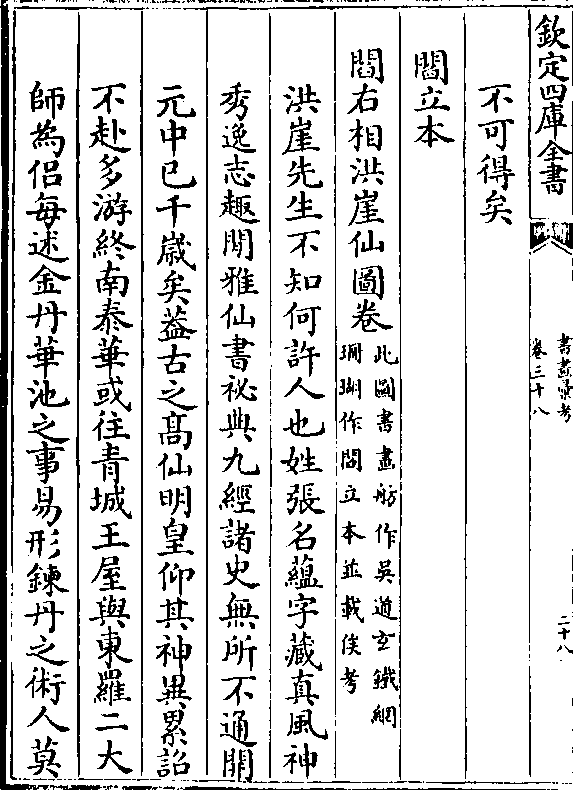 欽定四庫全書
書畫彙考
卷三十八
二十八
不可得矣
閻立本
閻右相洪崖仙圖卷此圖書畫舫作吳道玄鐵網
珊瑚作閻立本並載俟考
洪崖先生不知何許人也姓張名藴字藏真風神
秀逸志趣閒雅仙書祕典九經諸史無所不通開
元中已千歲矣葢古之髙仙明皇仰其神異累詔
不赴多游終南泰華或往青城王屋與東羅二大
師為侣每述金丹華池之事易形鍊丹之術人莫